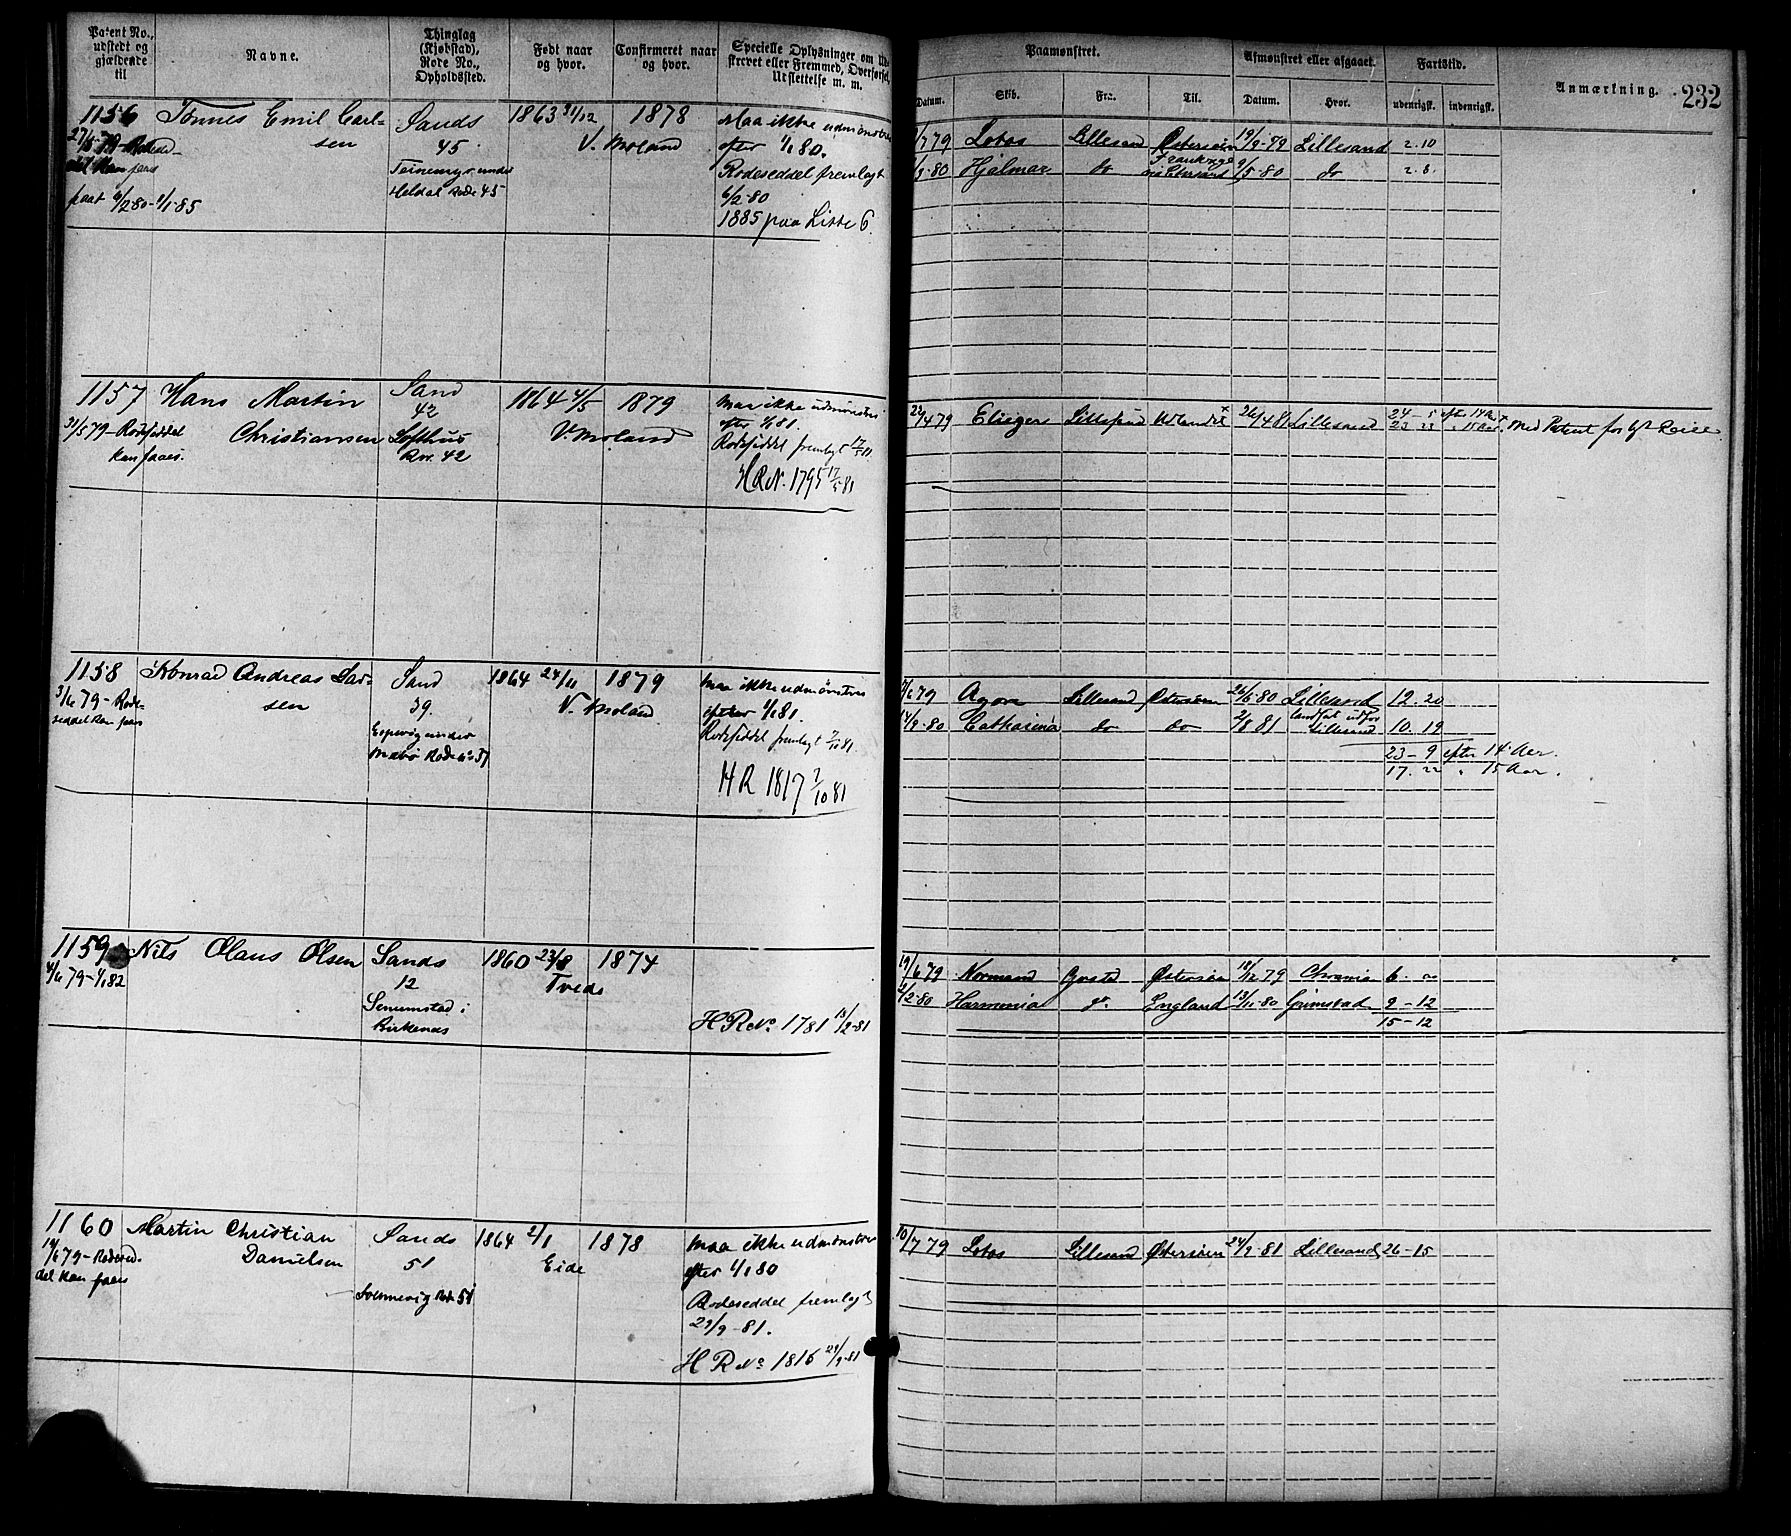 Patent No., udstedt og gjældende til
Navne.
Thinglag (Kjøbstad), Rode No., Opholdssted.
Født naar og hvor.
Confirmeret naar og hvor.
Specielle Oplysninger om Ud-
skrevet eller Fremmed, Overførsel,
Udslettelse m. m.
Paamønstret.
Afmønstret eller afgaaet.
Fartstid.
Anmærkning. 232
Datum. Skib. Fra. Til. Datum. Hvor. udenrigsk. indenrigsk.
1156 Tønnes Emil Carl-
sen
Sands
45
Teinemyr under
Heldal Rode 45
1863 31/12
V. Moland
1878
Maa ikke udmønstres
efter 1/1 80.
Rodeseddel fremlagt
6/2-80
1885 paa Liste 6.
paat 6/2 80-1/1-85
79 Lotos Lillesand Østersøen 19/9-79 Lillesand 2.10
80 Hjalmar do 9/5-80 do 2.6.
1157 Hans Martin
Christiansen
31/5 79-Rodeseddel
kan faaes.
Sand
42
Lofthus
Rno. 42
1864 4/5
V. Moland
1879
Maa ikke udmønstres
efter 1/1 81.
Rodeseddel fremlagt 17/5 81.
HRN. 1795 17/5 81
22/4 79 Eliezer Lillesand Udlandet x 26/4 81 Lillesand 24-5 efter 14 Aar
23 23 " 15 Aar x Med Patent for 1st Reise
1158 Konrad Andreas Lar-
sen
3/6 79-Rode-
seddel kan faaes
Sand
39.
Espevig under
Mæbø Rode No 39
1864 24/11
V. Moland
1879
Maa ikke udmønstres
efter 1/1 81.
Rodeseddel fremlagt 7/10 81.
HR 1817 7/10 81
6 79 Agora Lillesand Østersøen 26/6 80 Lillesand 12.20
14/9-80 Catharina do do 2/8 81 Landsat udfor
Lillesand 10.19
23-9 efter 14 Aar.
17.22 " 15 Aar.
1159 Nils Olaus Olsen
4/6 79-1/1 82
Sands
12
Senumstad i
Birkenæs
1860 23/8
Tveds
1874
HRNo. 1781 15/2-81
19/6 79 Normand Grstd Østersøen 18/12 79 Chrania 6.
2/2-80 Harmonia do England 13/11-80 Grimstad 9-12
15-12
1160 Martin Christian
Danielsen
14/6 79-Rodesed-
del kan faaes
Sands
51
Svennevig Rode 51
1864 2/1
Eide
1878
Maa ikke udmønstres
efter 1/1 80
Rodeseddel fremlagt
29/9-81.
HRNo 1816 29/9-81
10/7 79 Lotos Lillesand Østersøen 24/9-81 Lillesand 26-15